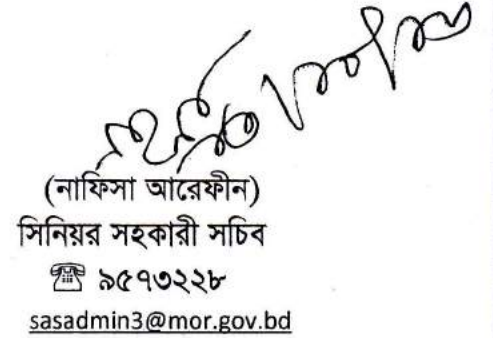 (নাফিসা আরেফীন)
সিনিয়র সহকারী সচিব
☏ ৯৫৭৩২২৮
sasadmin3@mor.gov.bd